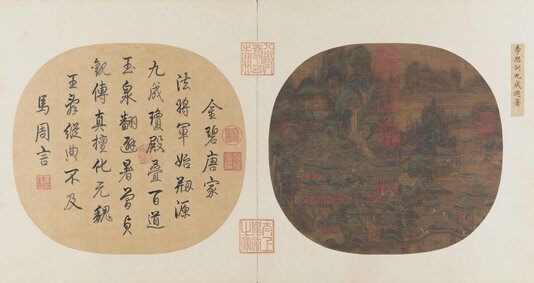 李思訓九成避暑
金碧唐家
法將軍始剏源
九成瓊殿疊百道
玉泉翻避暑曾貞
觀傳真擅化元魏
王縱典不及
馬周言